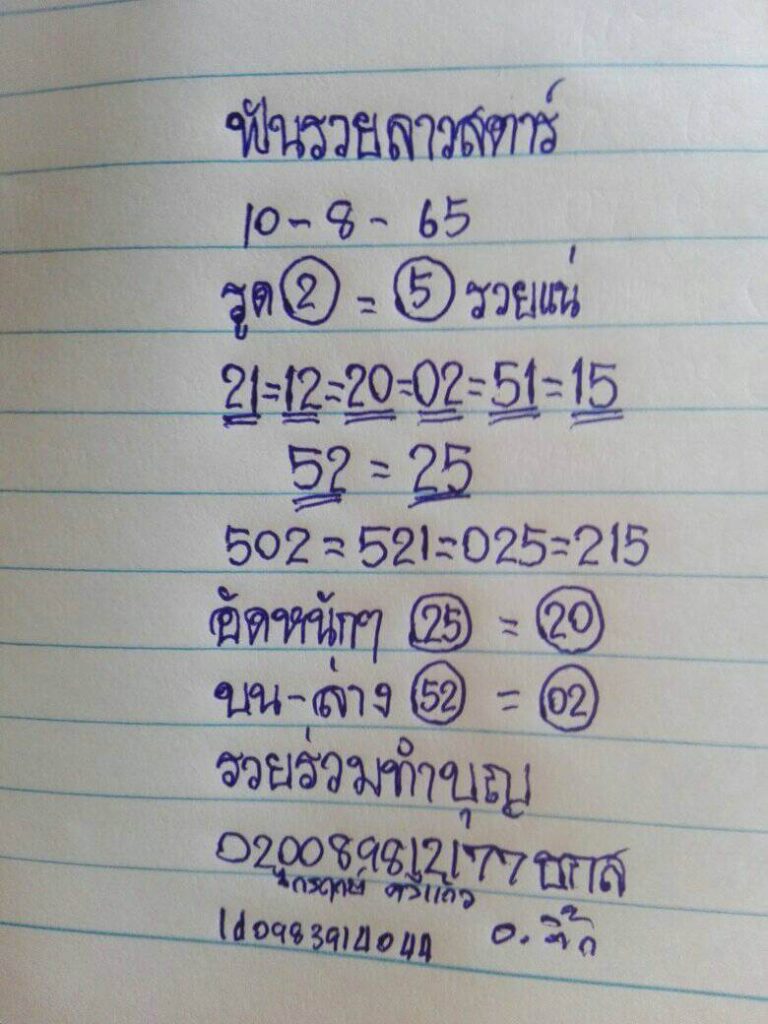 ฟันรวยลาวสตาร์
10-8-65
รูด 2 = 5 รวยแน่
21=12=20=02=51=15
52=25
502=521=025=215
อัดหนักๆ 25 = 20
บน-ล่าง 52 = 02
รวยร่วมทำบุญ
020089812177 ธกส
ศรีแก้ว
Id0983914044 อ.